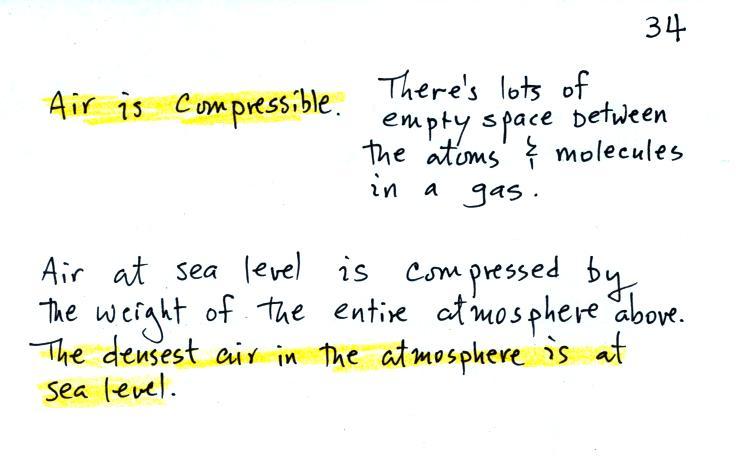 34
Air is compressible.
There's lots of
empty space between
the atoms & molecules
in a gas.
Air at sea level is compressed by
the weight of the entire atmosphere above.
The densest air in the atmosphere is at
sea level.